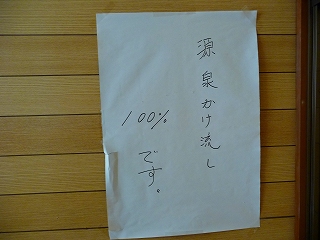 源泉かけ流し
100%
です。